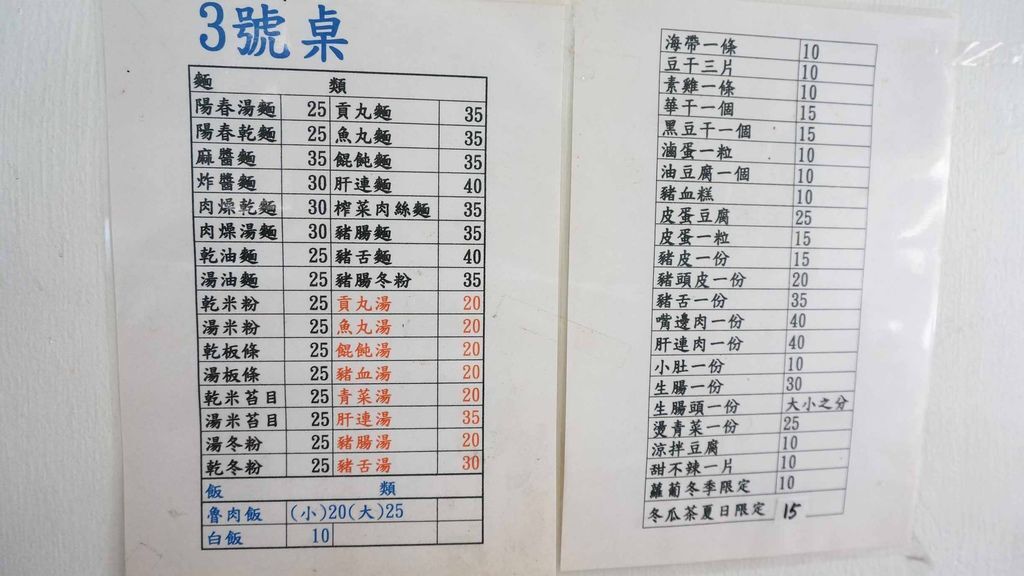 3號桌
麵 類
陽春湯麵 25 貢丸麵 35
陽春乾麵 25 魚丸麵 35
麻醬麵 35 餛飩麵 35
炸醬麵 30 肝連麵 40
肉燥乾麵 30 榨菜肉絲麵 35
肉燥湯麵 30 豬腸麵 35
乾油麵 25 豬舌麵 40
湯油麵 25 豬腸冬粉 35
乾米粉 25 貢丸湯 20
湯米粉 25 魚丸湯 20
乾板條 25 餛飩湯 20
湯板條 25 豬血湯 20
乾米苔目 25 青菜湯 20
湯米苔目 25 肝連湯 35
湯冬粉 25 豬腸湯 20
乾冬粉 25 豬舌湯 30
飯 類
魯肉飯 (小)20(大)25
白飯 10
海帶一條 10
豆干三片 10
素雞一條 10
華干一個 15
黑豆干一個 15
滷蛋一粒 10
油豆腐一個 10
豬血糕 10
皮蛋豆腐 25
皮蛋一粒 15
豬皮一份 15
豬頭皮一份 20
豬舌一份 35
嘴邊肉一份 40
肝連肉一份 40
小肚一份 10
生腸一份 30
生腸頭一份 大小之分
燙青菜一份 25
涼拌豆腐 10
甜不辣一片 10
蘿蔔冬季限定 10
冬瓜茶夏日限定 15